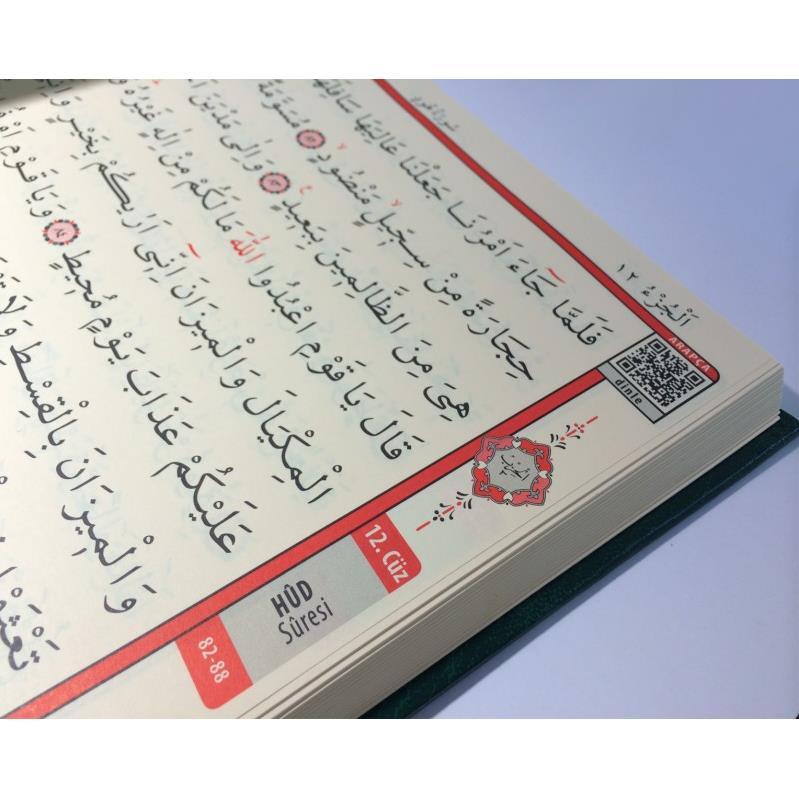 سُورَةُ هُودٍ
اَلْجُزْءُ ١٢
ARAPÇA
dinle
فَلَمَّا جَٓاءَ اَمْرُنَا جَعَلْنَا عَالِيَهَا سَافِلَهَا
حِجَارَةً مِنْ سِجّ۪يلٍ مَنْضُودٍۙ ﴿٨٢﴾ مُسَوَّمَةً
هِيَ مِنَ الظَّالِم۪ينَ بِبَع۪يدٍ ﴿٨٣﴾ وَاِلٰى مَدْيَنَ
قَالَ يَا قَوْمِ اعْبُدُوا اللّٰهَ مَا لَكُمْ مِنْ اِلٰهٍ غَيْرُهُ
الْمِكْيَالَ وَالْم۪يزَانَ اِنّ۪ٓي اَرٰيكُمْ بِخَيْرٍ
عَلَيْكُمْ عَذَابَ يَوْمٍ مُح۪يطٍ ﴿٨٤﴾ وَيَا قَوْمِ
وَالْم۪يزَانَ بِالْقِسْطِ وَلَا
تَعْثَوْا
12. Cüz
HÛD
Sûresi
82-88